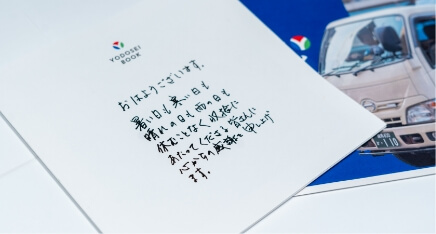 YODOSEI
BOOK
おはようございます。
暑い日も 寒い日も
晴れの日も 雨の日も
休むことなく 収集に
あたってくださる皆さんに
心からの感謝を申し上げ
ます。
110